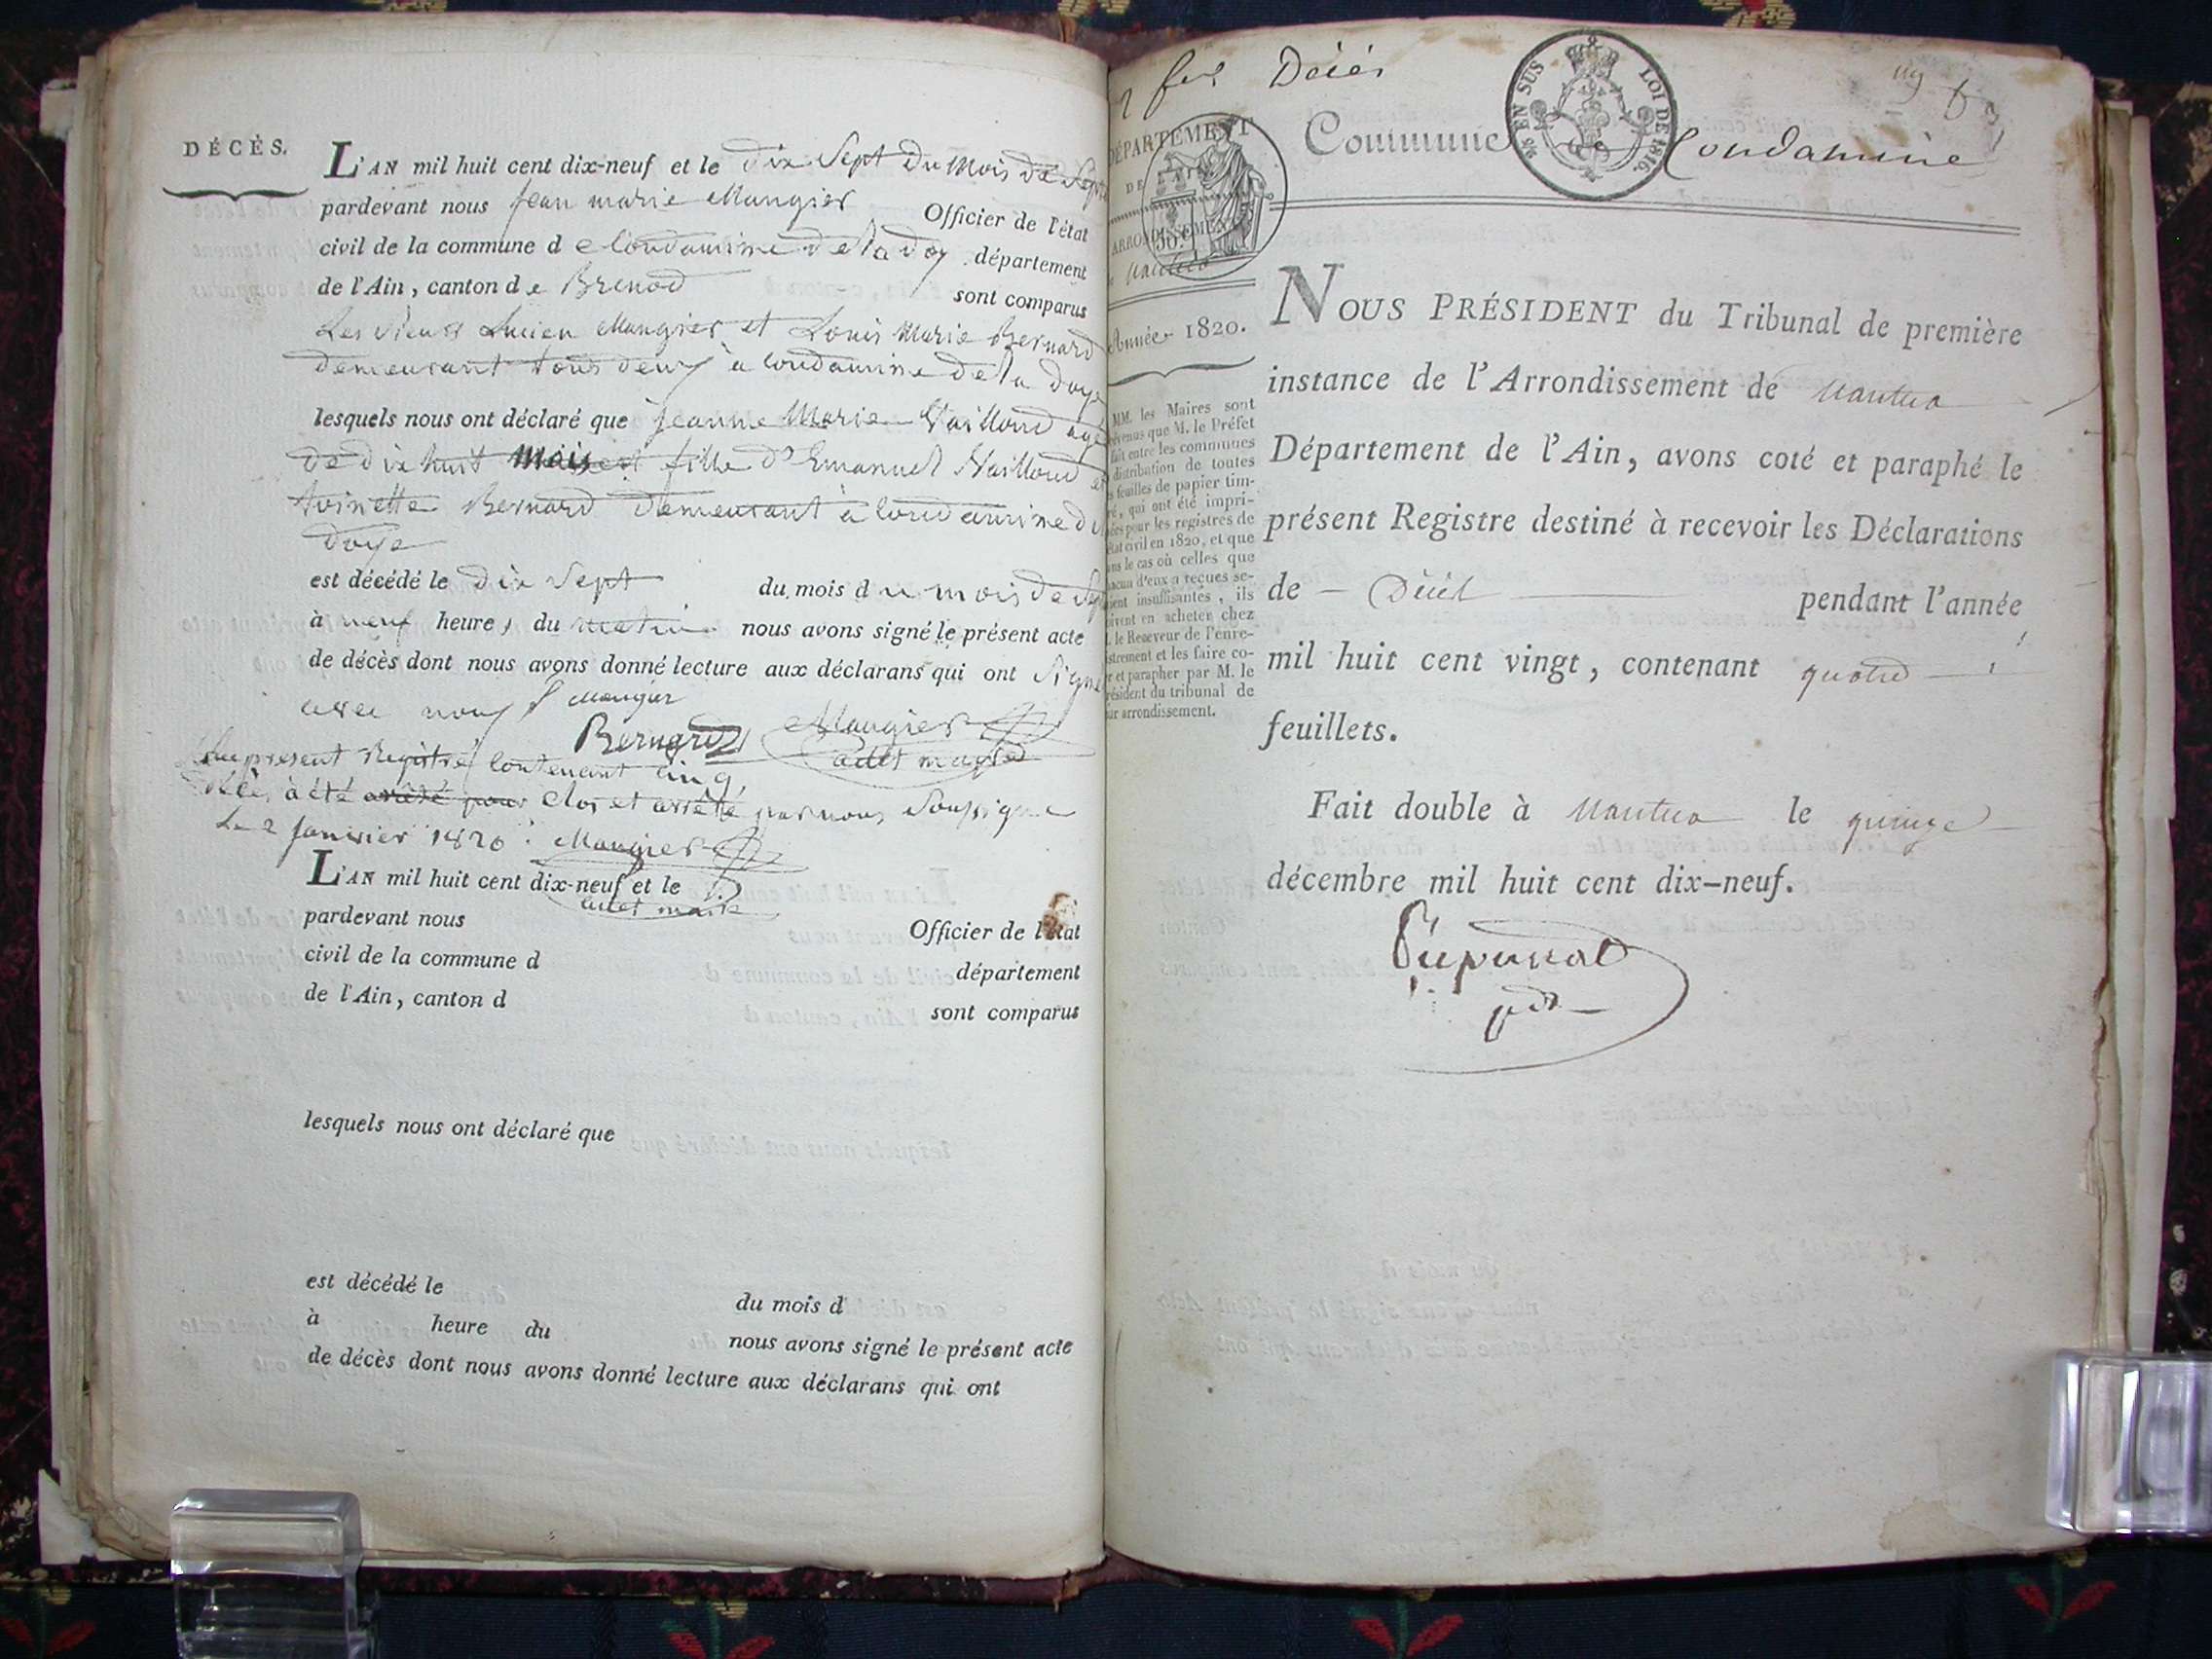 DÉCÈS.
L'AN mil huit cent dix-neuf et le dix Sept Du Mois de
pardevant nous Jean marie Maugier Officier de l'état
civil de la commune d e Condamine de la doy département
de l'Ain, canton d e Brenod sont comparus
Les Sieurs Lucien Maugier et Louis Marie Bernard
demeurant tous deux à Condamine de la doye
lesquels nous ont déclaré que Jeanne Marie Vailloud agé
de dix huit Mois fille d'Emanuel Vailloud et
toinette Bernard demeurant à Condamine d
doye
est décédé le dix Sept du mois d u mois de
à neuf heures du matin nous avons signé le présent acte
de décès dont nous avons donné lecture aux déclarans qui ont Signé
avec nous Maugier
Bernard Maugier
adet maire
present Registre contenant cinq
décès à été arrêté pour Clos et arrêté par nous Soussigné
Le 2 Janvier 1820. Maugier
L'AN mil huit cent dix-neuf et le
adet maire
pardevant nous Officier de l'état
civil de la commune d département
de l'Ain, canton d sont comparus
lesquels nous ont déclaré que
est décédé le du mois d
à heure du nous avons signé le présent acte
de décès dont nous avons donné lecture aux déclarans qui ont
Décès
DÉPARTEMENT
DE L'AIN
ARRONDISSEMENT
Nantua
50.C
25 EN SUS LOI DE 1816.
Commune de Condamine
Année 1820.
MM. les Maires sont
prévenus que M. le Préfet
fait entre les communes
distribution de toutes
les feuilles de papier tim-
bré, qui ont été impri-
mées pour les registres de
l'état civil en 1820, et que
dans le cas où celles que
chacun d'eux a reçues se-
roient insuffisantes, ils
doivent en acheter chez
M. le Receveur de l'enre-
gistrement et les faire co-
ter et parapher par M. le
président du tribunal de
leur arrondissement.
NOUS PRÉSIDENT du Tribunal de première
instance de l'Arrondissement de Nantua
Département de l'Ain, avons coté et paraphé le
présent Registre destiné à recevoir les Déclarations
de Décès pendant l'année
mil huit cent vingt, contenant quatre
feuillets.
Fait double à Nantua le quinze
décembre mil huit cent dix-neuf.